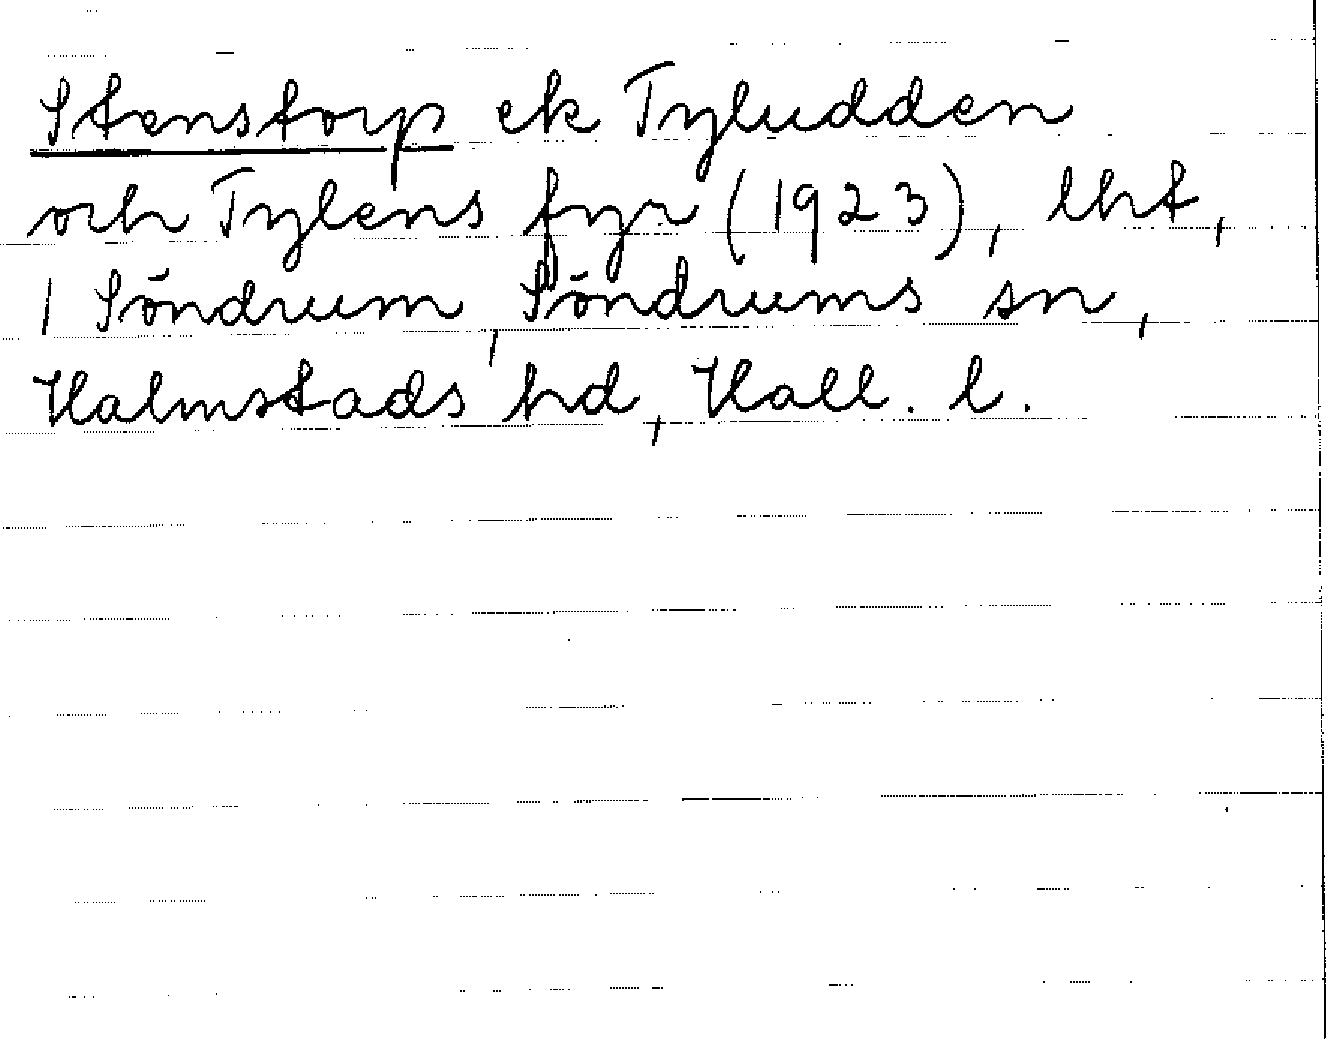 Stenstorp ek Tyludden
och Tylens fyr (1923), lht,
1 Söndrum, Söndrums sn,
Halmstads hd, Hall. l.